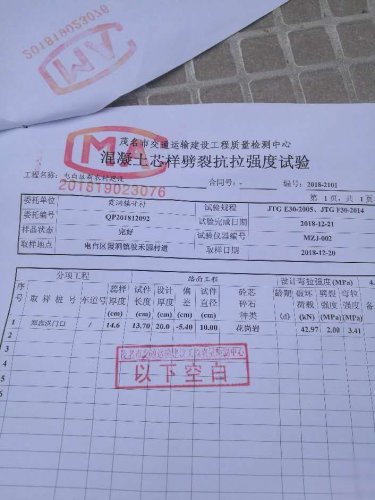 201819023076
MA
茂名市交通运输建设工程质量检测中心
混凝土芯样劈裂抗拉强度试验
工程名称: 合同号: - 编号: 2018-2101
201819023076
第 1 页, 共 1 页
委托单位 试验规程 JTG E30-2005、JTG F30-2014
委托编号 QP201812092 试验完成日期 2018-12-21
样品状态 完好 试验仪器编号 MZJ-002
取样地点 取样日期 2018-12-20
分项工程 路面工程 设计弯拉强度(MPa) 4.
序号 取样桩号 车道号 芯样厚度(cm) 试件长度(cm) 设计厚度(cm) 偏差(cm) 试件直径(cm) 砼芯碎石种类 龄期(d) 破坏荷载(kN) 劈裂强度(MPa) 弯拉强度(MPa)
1 / 14.6 13.70 20.0 -5.40 10.00 花岗岩 42.97 2.00 3.41
2
3
茂名市交通运输建设工程质量检测中心
以下空白